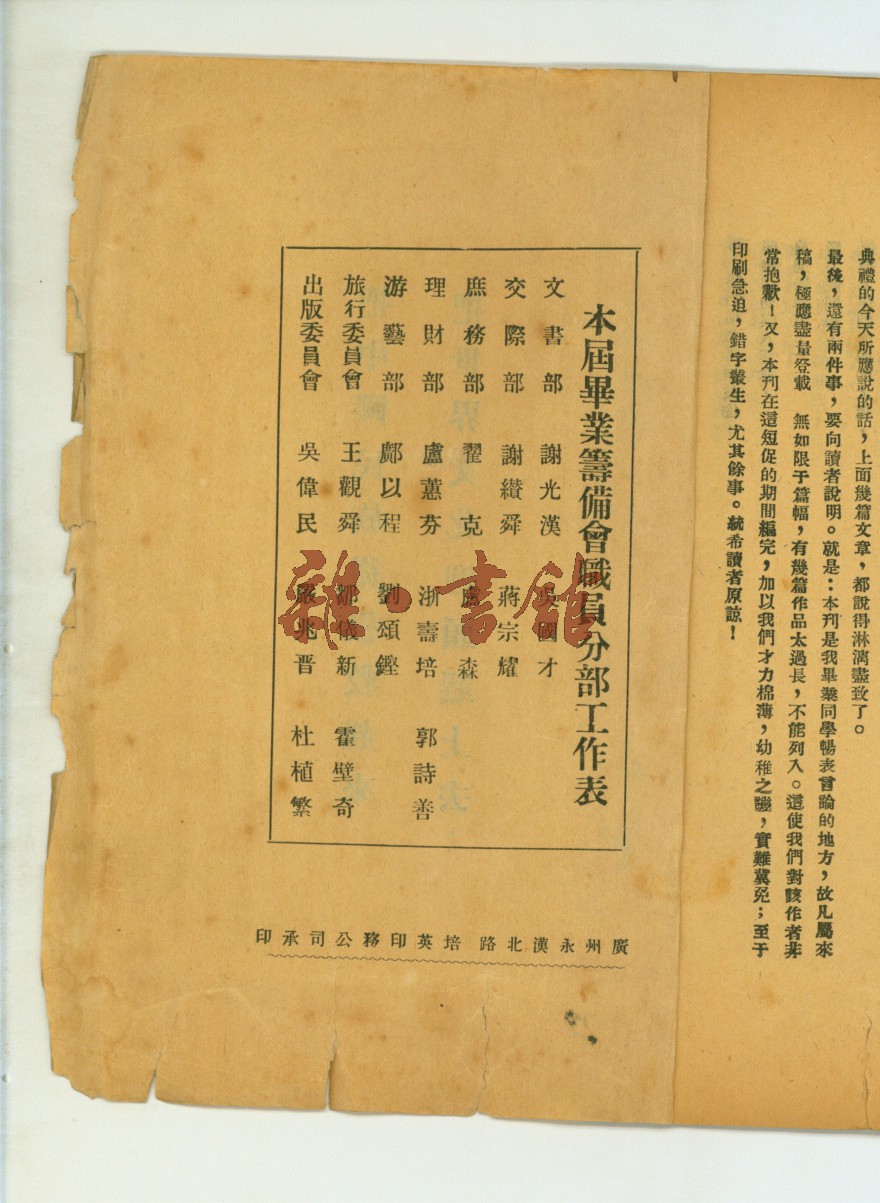 典禮的今天所應說的話，上面幾篇文章，都說得淋漓盡致了。
最後，還有兩件事，要向讀者說明。就是：本刊是我畢業同學暢表言論的地方，故凡屬來
稿，極應盡量登載　無如限于篇幅，有幾篇作品太過長，不能列入。這使我們對該作者非
常抱歉！又，本刊在這短促的期間編完，加以我們才力棉薄，幼稚之譏，實難冀免；至于
印刷急迫，錯字叢生，尤其餘事。統希讀者原諒！
本屆畢業籌備會職員分部工作表
文書部　謝光漢　吳國才
交際部　謝纘舜　蔣宗耀
庶務部　翟克　盧森
理財部　盧蕙芬　浙壽培　郭詩善
游藝部　鄺以程　劉頌鏗
旅行委員會　王觀舜　鄒儀新　霍壁奇
出版委員會　吳偉民　嚴兆晋　杜植繁
廣州永漢北路培英印務公司承印
雜·書館